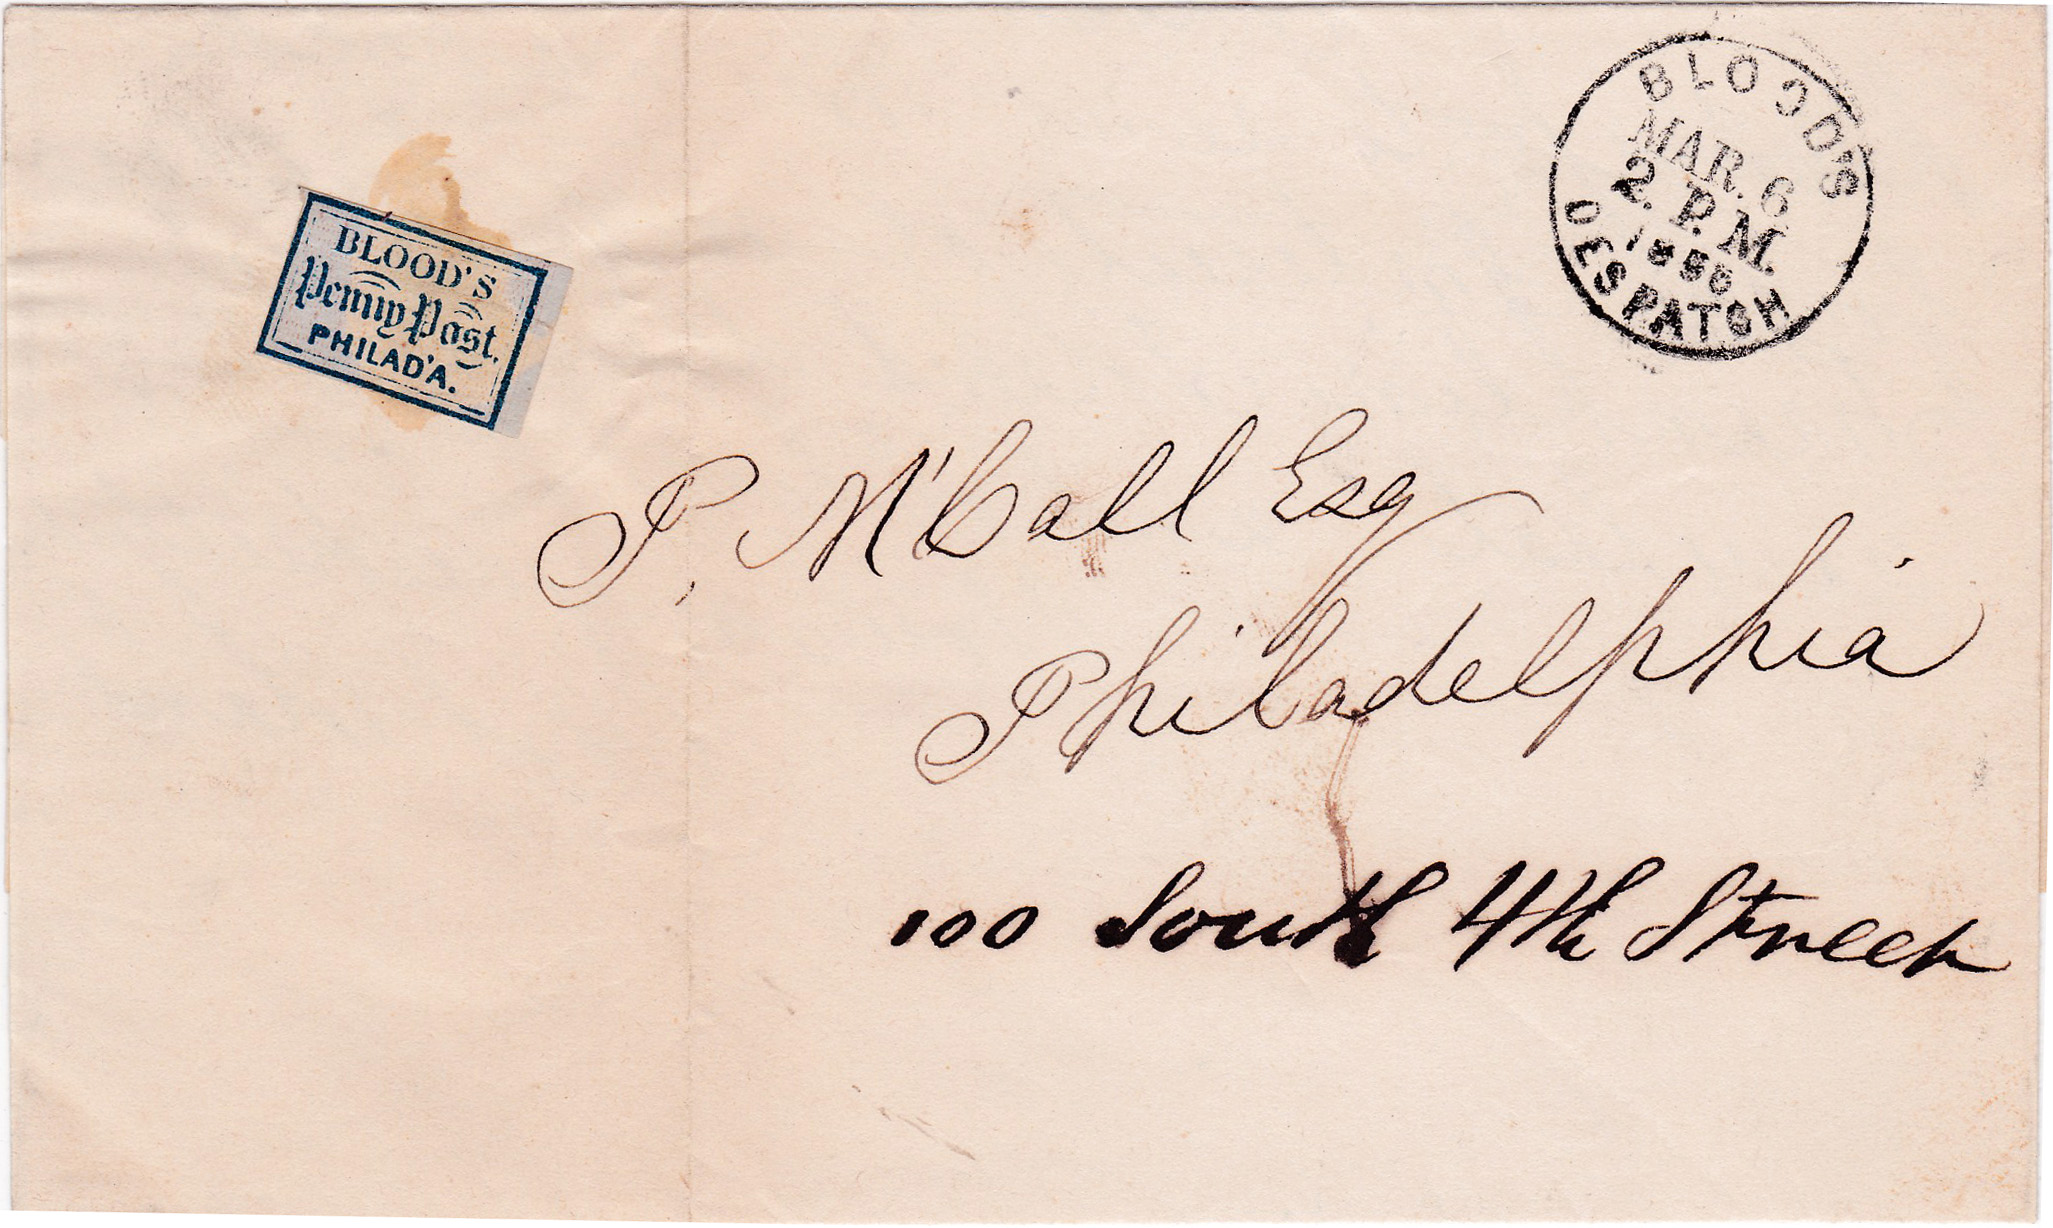 BLOOD'S
Penny Post.
PHILAD'A.
BLOOD'S
MAR. 6
2. P.M.
DESPATCH
P. M'Call Esq
Philadelphia
100 South 4th Street